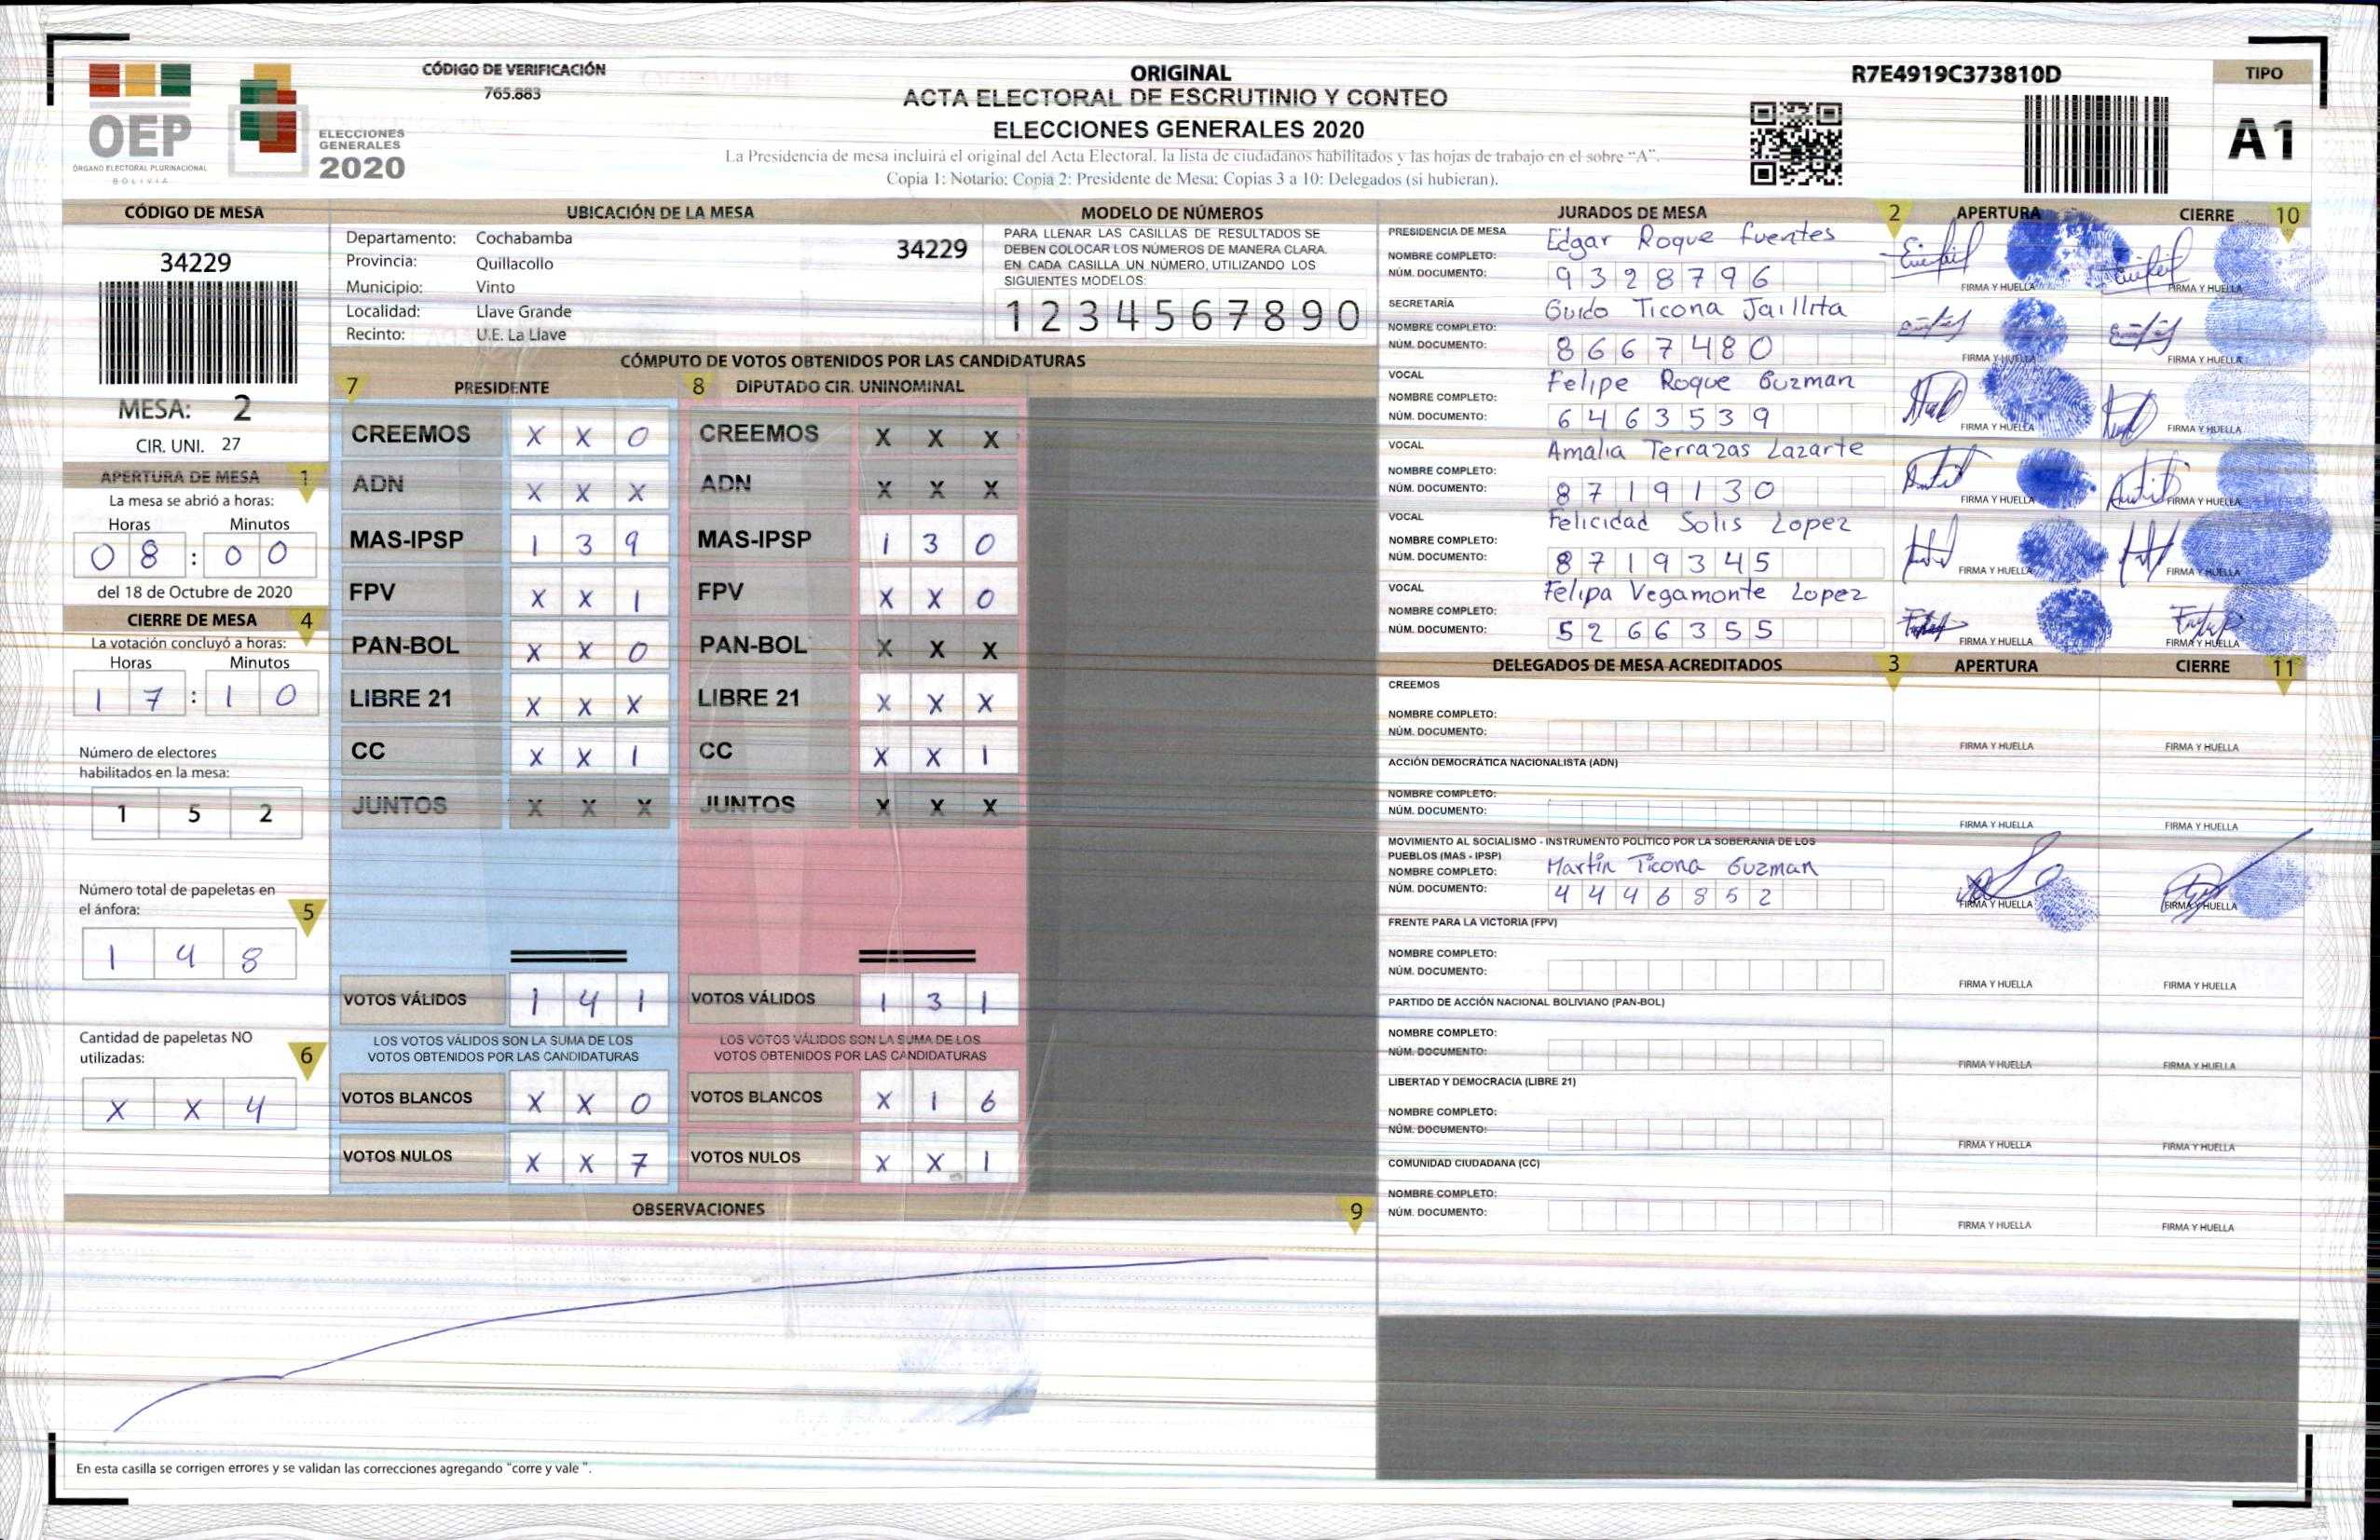 OEP
ÓRGANO ELECTORAL PLURINACIONAL
BOLIVIA
ELECCIONES
GENERALES
2020
CÓDIGO DE VERIFICACIÓN
765.883
ORIGINAL
ACTA ELECTORAL DE ESCRUTINIO Y CONTEO
ELECCIONES GENERALES 2020
La Presidencia de mesa incluirá el original del Acta Electoral, la lista de ciudadanos habilitados y las hojas de trabajo en el sobre “A”.
Copia 1: Notario; Copia 2: Presidente de Mesa; Copias 3 a 10: Delegados (si hubieran).
R7E4919C373810D
TIPO
A1
CÓDIGO DE MESA
34229
MESA: 2
CIR. UNI. 27
APERTURA DE MESA 1
La mesa se abrió a horas:
Horas Minutos
0 8 : 0 0
del 18 de Octubre de 2020
CIERRE DE MESA 4
La votación concluyó a horas:
Horas Minutos
1 7 : 1 0
Número de electores
habilitados en la mesa:
1 5 2
Número total de papeletas en
el ánfora:
5
1 4 8
Cantidad de papeletas NO
utilizadas:
6
X X 4
UBICACIÓN DE LA MESA
Departamento: Cochabamba
34229
Provincia: Quillacollo
Municipio: Vinto
Localidad: Llave Grande
Recinto: U.E. La Llave
MODELO DE NÚMEROS
PARA LLENAR LAS CASILLAS DE RESULTADOS SE
DEBEN COLOCAR LOS NÚMEROS DE MANERA CLARA.
EN CADA CASILLA UN NÚMERO, UTILIZANDO LOS
SIGUIENTES MODELOS:
1 2 3 4 5 6 7 8 9 0
CÓMPUTO DE VOTOS OBTENIDOS POR LAS CANDIDATURAS
7 PRESIDENTE 8 DIPUTADO CIR. UNINOMINAL
CREEMOS X X 0 CREEMOS X X X
ADN X X X ADN X X X
MAS-IPSP 1 3 9 MAS-IPSP 1 3 0
FPV X X 1 FPV X X 0
PAN-BOL X X 0 PAN-BOL X X X
LIBRE 21 X X X LIBRE 21 X X X
CC X X 1 CC X X 1
JUNTOS X X X JUNTOS X X X
VOTOS VÁLIDOS 1 4 1 VOTOS VÁLIDOS 1 3 1
LOS VOTOS VÁLIDOS SON LA SUMA DE LOS LOS VOTOS VÁLIDOS SON LA SUMA DE LOS
VOTOS OBTENIDOS POR LAS CANDIDATURAS VOTOS OBTENIDOS POR LAS CANDIDATURAS
VOTOS BLANCOS X X 0 VOTOS BLANCOS X 1 6
VOTOS NULOS X X 7 VOTOS NULOS X X 1
OBSERVACIONES 9
En esta casilla se corrigen errores y se validan las correcciones agregando "corre y vale ".
JURADOS DE MESA 2 APERTURA CIERRE 10
PRESIDENCIA DE MESA
NOMBRE COMPLETO: Edgar Roque Fuentes
NÚM. DOCUMENTO: 9328796
FIRMA Y HUELLA FIRMA Y HUELLA
SECRETARÍA
NOMBRE COMPLETO: Guido Ticona Jaillita
NÚM. DOCUMENTO: 8667480
FIRMA Y HUELLA FIRMA Y HUELLA
VOCAL
NOMBRE COMPLETO: Felipe Roque Guzman
NÚM. DOCUMENTO: 6463539
FIRMA Y HUELLA FIRMA Y HUELLA
VOCAL
NOMBRE COMPLETO: Amalia Terrazas Lazarte
NÚM. DOCUMENTO: 8719130
FIRMA Y HUELLA FIRMA Y HUELLA
VOCAL
NOMBRE COMPLETO: Felicidad Solis Lopez
NÚM. DOCUMENTO: 8719345
FIRMA Y HUELLA FIRMA Y HUELLA
VOCAL
NOMBRE COMPLETO: Felipa Vegamonte Lopez
NÚM. DOCUMENTO: 5266355
FIRMA Y HUELLA FIRMA Y HUELLA
DELEGADOS DE MESA ACREDITADOS 3 APERTURA CIERRE 11
CREEMOS
NOMBRE COMPLETO:
NÚM. DOCUMENTO:
FIRMA Y HUELLA FIRMA Y HUELLA
ACCIÓN DEMOCRÁTICA NACIONALISTA (ADN)
NOMBRE COMPLETO:
NÚM. DOCUMENTO:
FIRMA Y HUELLA FIRMA Y HUELLA
MOVIMIENTO AL SOCIALISMO - INSTRUMENTO POLÍTICO POR LA SOBERANIA DE LOS
PUEBLOS (MAS - IPSP)
NOMBRE COMPLETO: Martin Ticona Guzman
NÚM. DOCUMENTO: 4446852
FIRMA Y HUELLA FIRMA Y HUELLA
FRENTE PARA LA VICTORIA (FPV)
NOMBRE COMPLETO:
NÚM. DOCUMENTO:
FIRMA Y HUELLA FIRMA Y HUELLA
PARTIDO DE ACCIÓN NACIONAL BOLIVIANO (PAN-BOL)
NOMBRE COMPLETO:
NÚM. DOCUMENTO:
FIRMA Y HUELLA FIRMA Y HUELLA
LIBERTAD Y DEMOCRACIA (LIBRE 21)
NOMBRE COMPLETO:
NÚM. DOCUMENTO:
FIRMA Y HUELLA FIRMA Y HUELLA
COMUNIDAD CIUDADANA (CC)
NOMBRE COMPLETO:
NÚM. DOCUMENTO:
FIRMA Y HUELLA FIRMA Y HUELLA